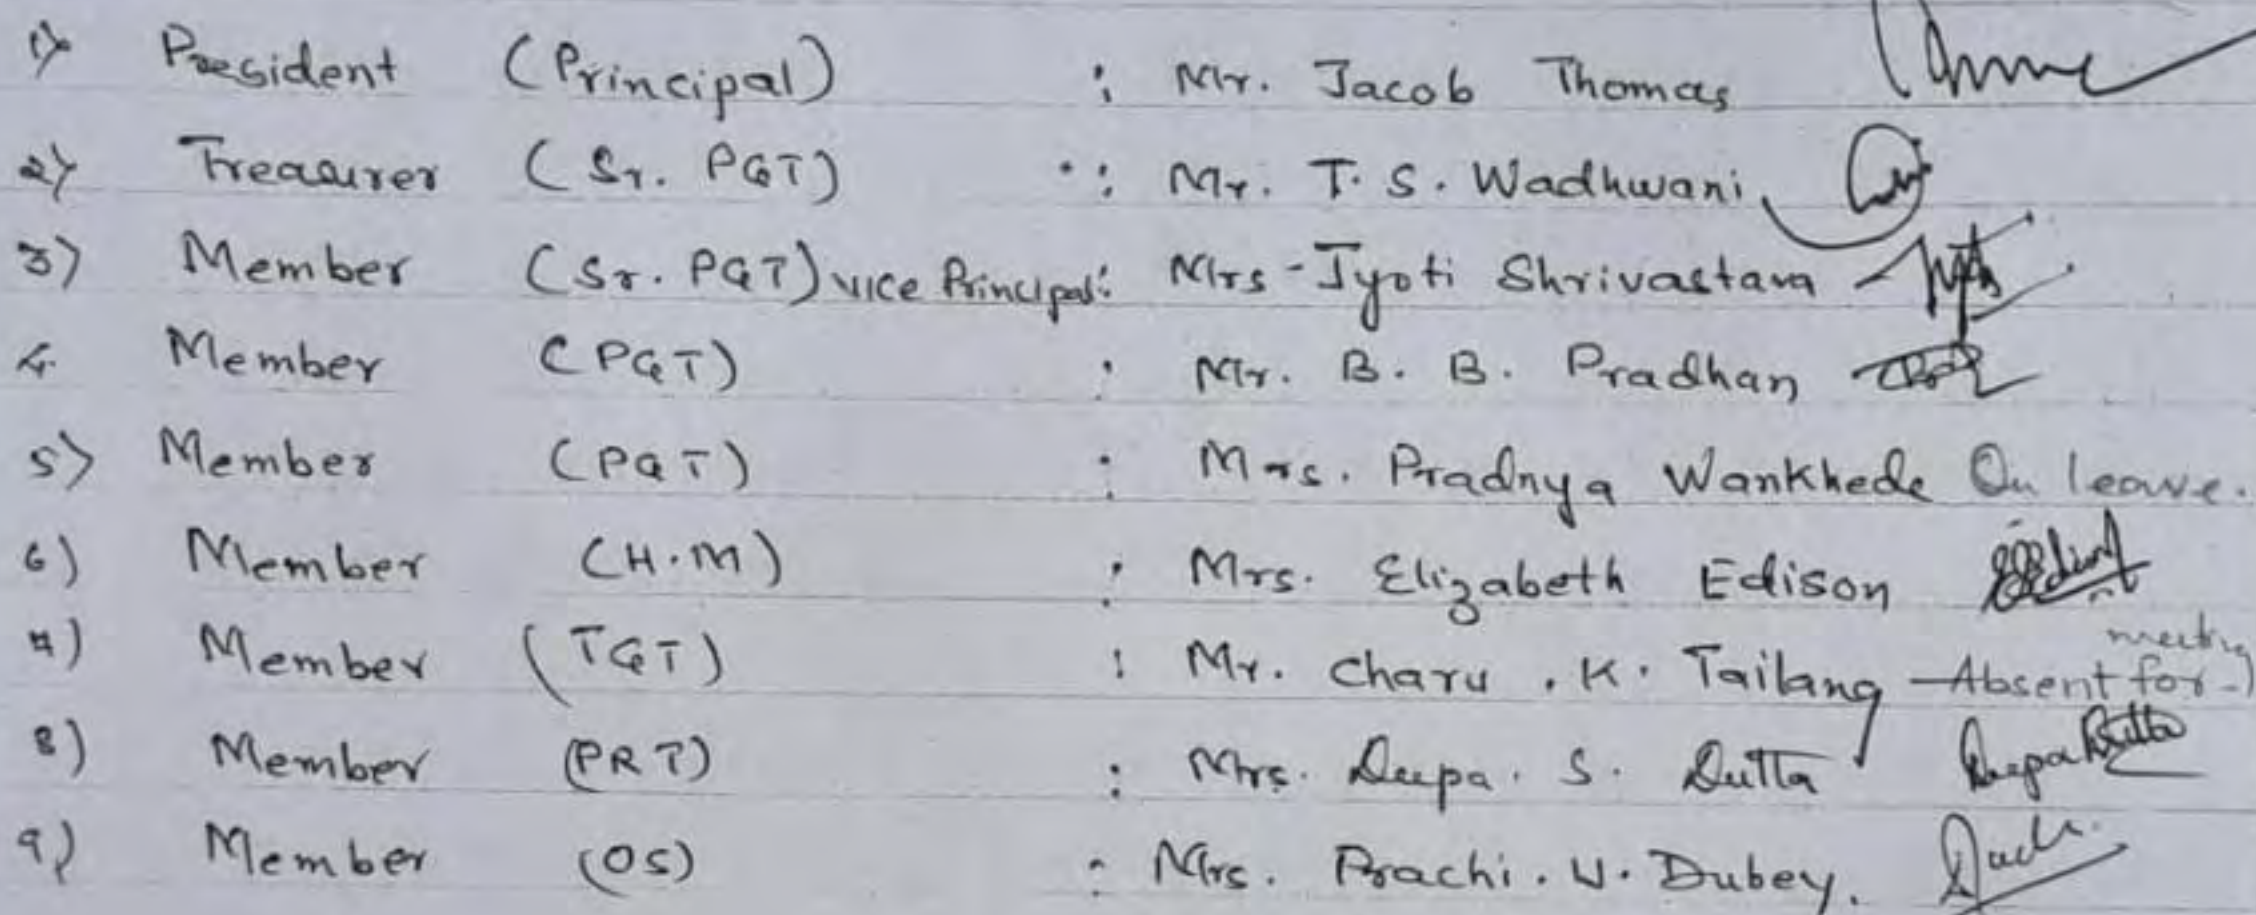 1) President (Principal) : Mr. Jacob Thomas
2) Treasurer (Sr. PGT) : Mr. T. S. Wadhwani
3) Member (Sr. PGT) Vice Principal : Mrs - Jyoti Shrivastava
4. Member (PGT) : Mr. B. B. Pradhan
5) Member (PGT) : Mrs. Pradnya Wankhede On leave.
6) Member (H.M) : Mrs. Elizabeth Edison
7) Member (TGT) : Mr. Charu . K. Tailang - Absent for meeting
8) Member (PRT) : Mrs. Deepa. S. Dutta Deepa Dutta
9) Member (OS) : Mrs. Prachi. V. Dubey.